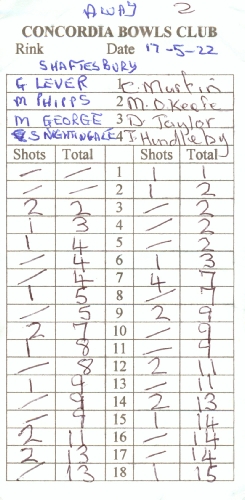 AWAY 2
CONCORDIA BOWLS CLUB
Rink Date 17-5-22
SHAFTESBURY
G LEVER 1 C. Martin
M PHIPPS 2 M. O'Keefe
M GEORGE 3 D. Taylor
S NIGHTINGALE 4 J. Hundleby
Shots Total Shots Total
— — 1 1 1
— — 2 1 2
2 2 3 — 2
1 3 4 — 2
1 4 5 — 2
— 4 6 1 3
— 4 7 4 7
1 5 8 — 7
— 5 9 2 9
2 7 10 — 9
1 8 11 — 9
— 8 12 2 11
1 9 13 — 11
— 9 14 2 13
— 9 15 1 14
2 11 16 — 14
2 13 17 — 14
— 13 18 1 15